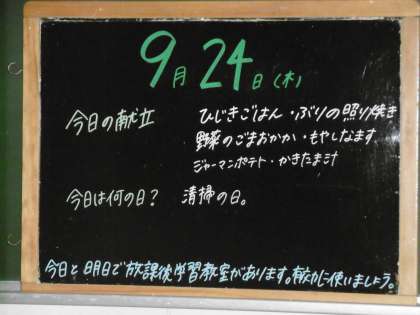 9月24日(木)
今日の献立 ひじきごはん・ぶりの照り焼き
野菜のごまおかか・もやしなます
ジャーマンポテト・かきたま汁
今日は何の日? 清掃の日。
今日と明日で放課後学習教室があります。有効に使いましょう。